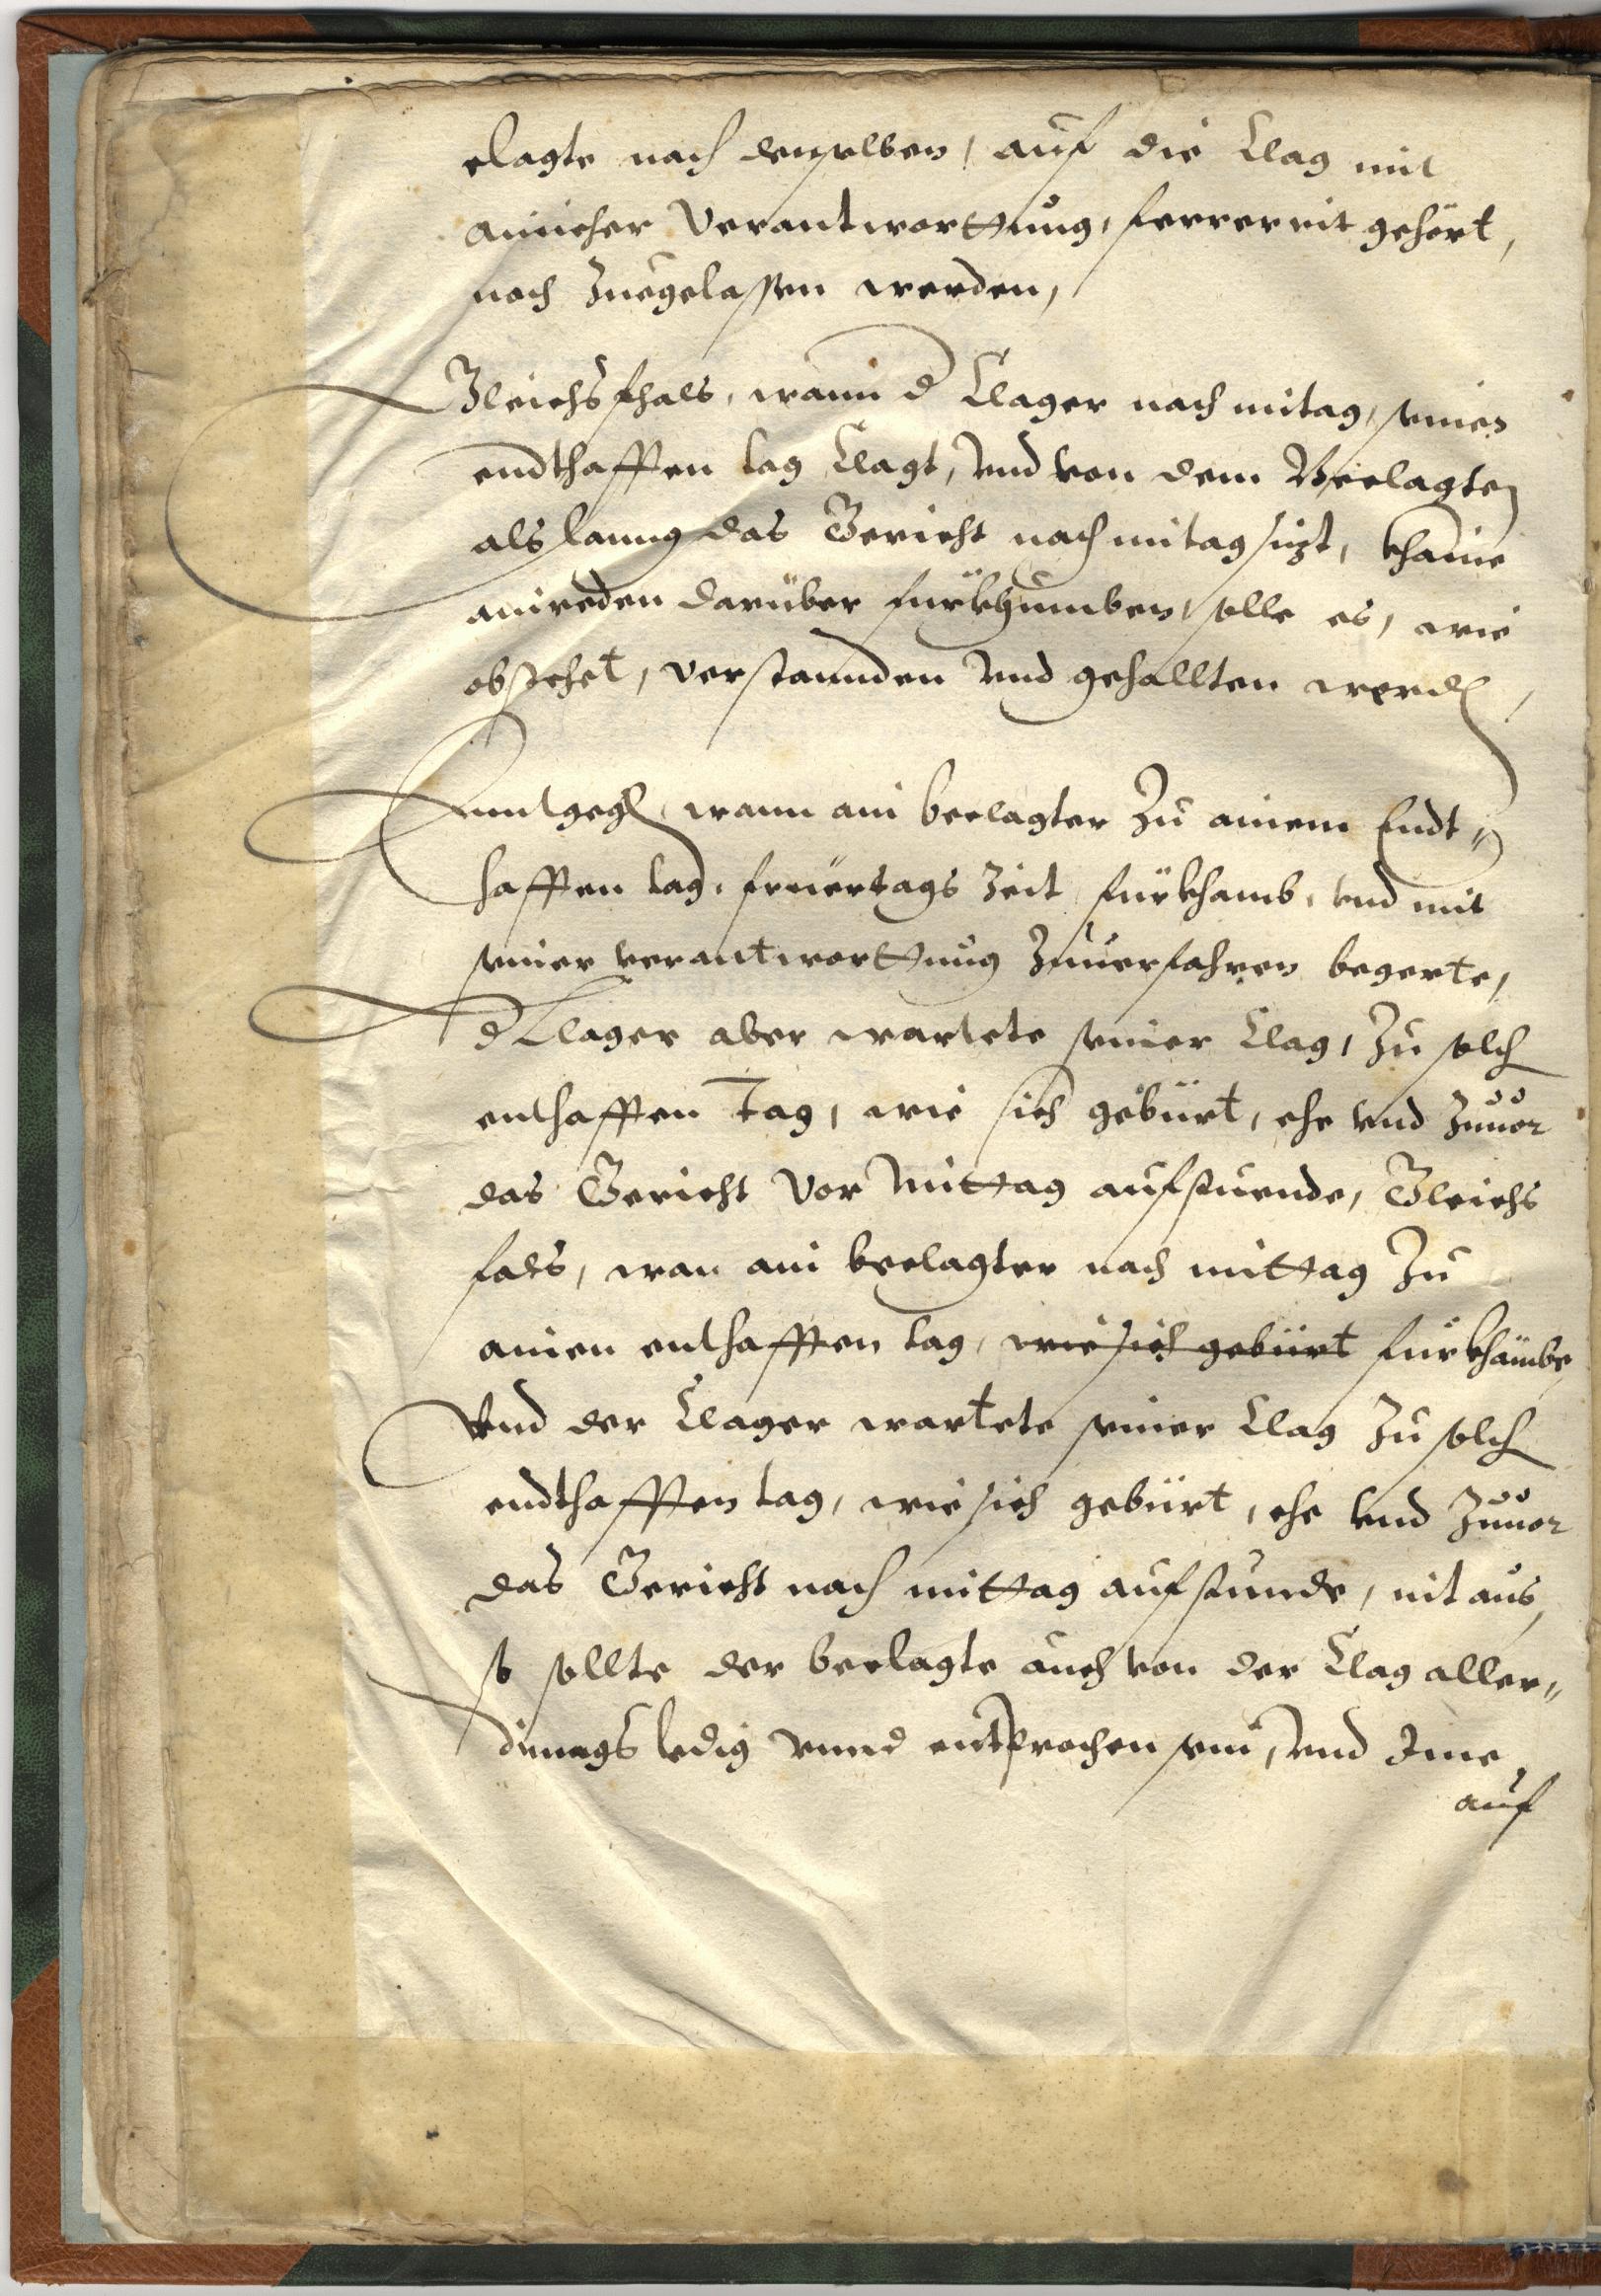 clagte nach denselben, auf die Clag mit
ainicher Verantworttung, ferrer nit gehört,
noch Zuegelassen werden,
Gleichsfhals, wann d Clager nach mitag, seinen
endthafften tag Clagt, und von dem Beclagten
als lanng das Gericht nach mitag sizt, khaine
ainreden darüber fürkhumben, solle es, wie
obstehet, verstannden und gehallten werden,
Enntgegen, wann ain beclagter Zu ainem Endt„
hafften tag, freüertags Zeit fürkhamb, und mit
seiner verantworttung Zuuerfahren begerte,
d Clager aber wartete seiner Clag, Zu solch
enthafften Tag, wie sich gebürt, ehe und Zuuor
das Gericht Vor Mittag aufstuende, Gleichs
fals, wan ain beclagter nach mittag Zu
ainen enthafften tag, wie sich gebürt fürkhämbe,
Und der Clager wartete seiner Clag Zu solch
endthafften tag, wie sich gebürt, ehe und Zuuor
das Gericht nach mittag aufstunde, nit aus,
so sollte der beclagte auch von der Clag aller„
dinngs ledig vnnd entsprochen sein, und Ime,
auf